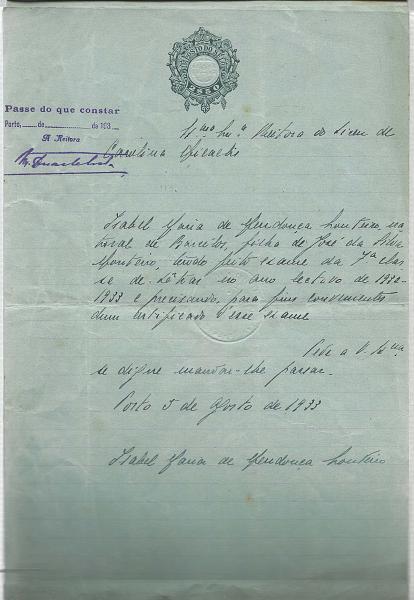 Passe do que constar
Porto, de de 193
A Reitora
Ilma Exa Reitora do Liceu de
Carolina Michaëlis
Isabel Maria de Mendonça Monteiro, na
tural de Barcelos, filha de José da Silva
Monteiro, tendo feito exame da 7ª clas
se de Letras no ano lectivo de 1932-
1933 e precisando, para fins convenientes
dum certificado dêsse exame
Pede a V. Exa
se digne mandar-lhe passar.
Porto 5 de Agosto de 1933
Isabel Maria de Mendonça Monteiro